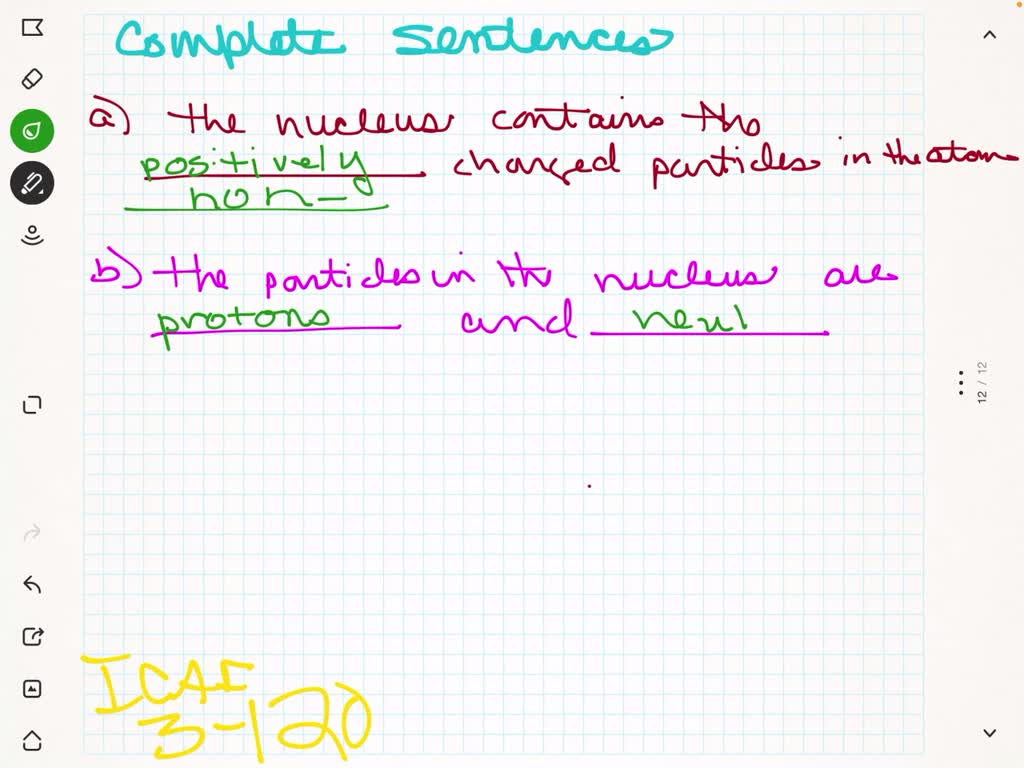 Complete Sentences
a) the nucleus contains the
positively charged particles in the atom
non-
b) the particles in the nucleus are
protons and neu
ICAI
3-120
12 / 12